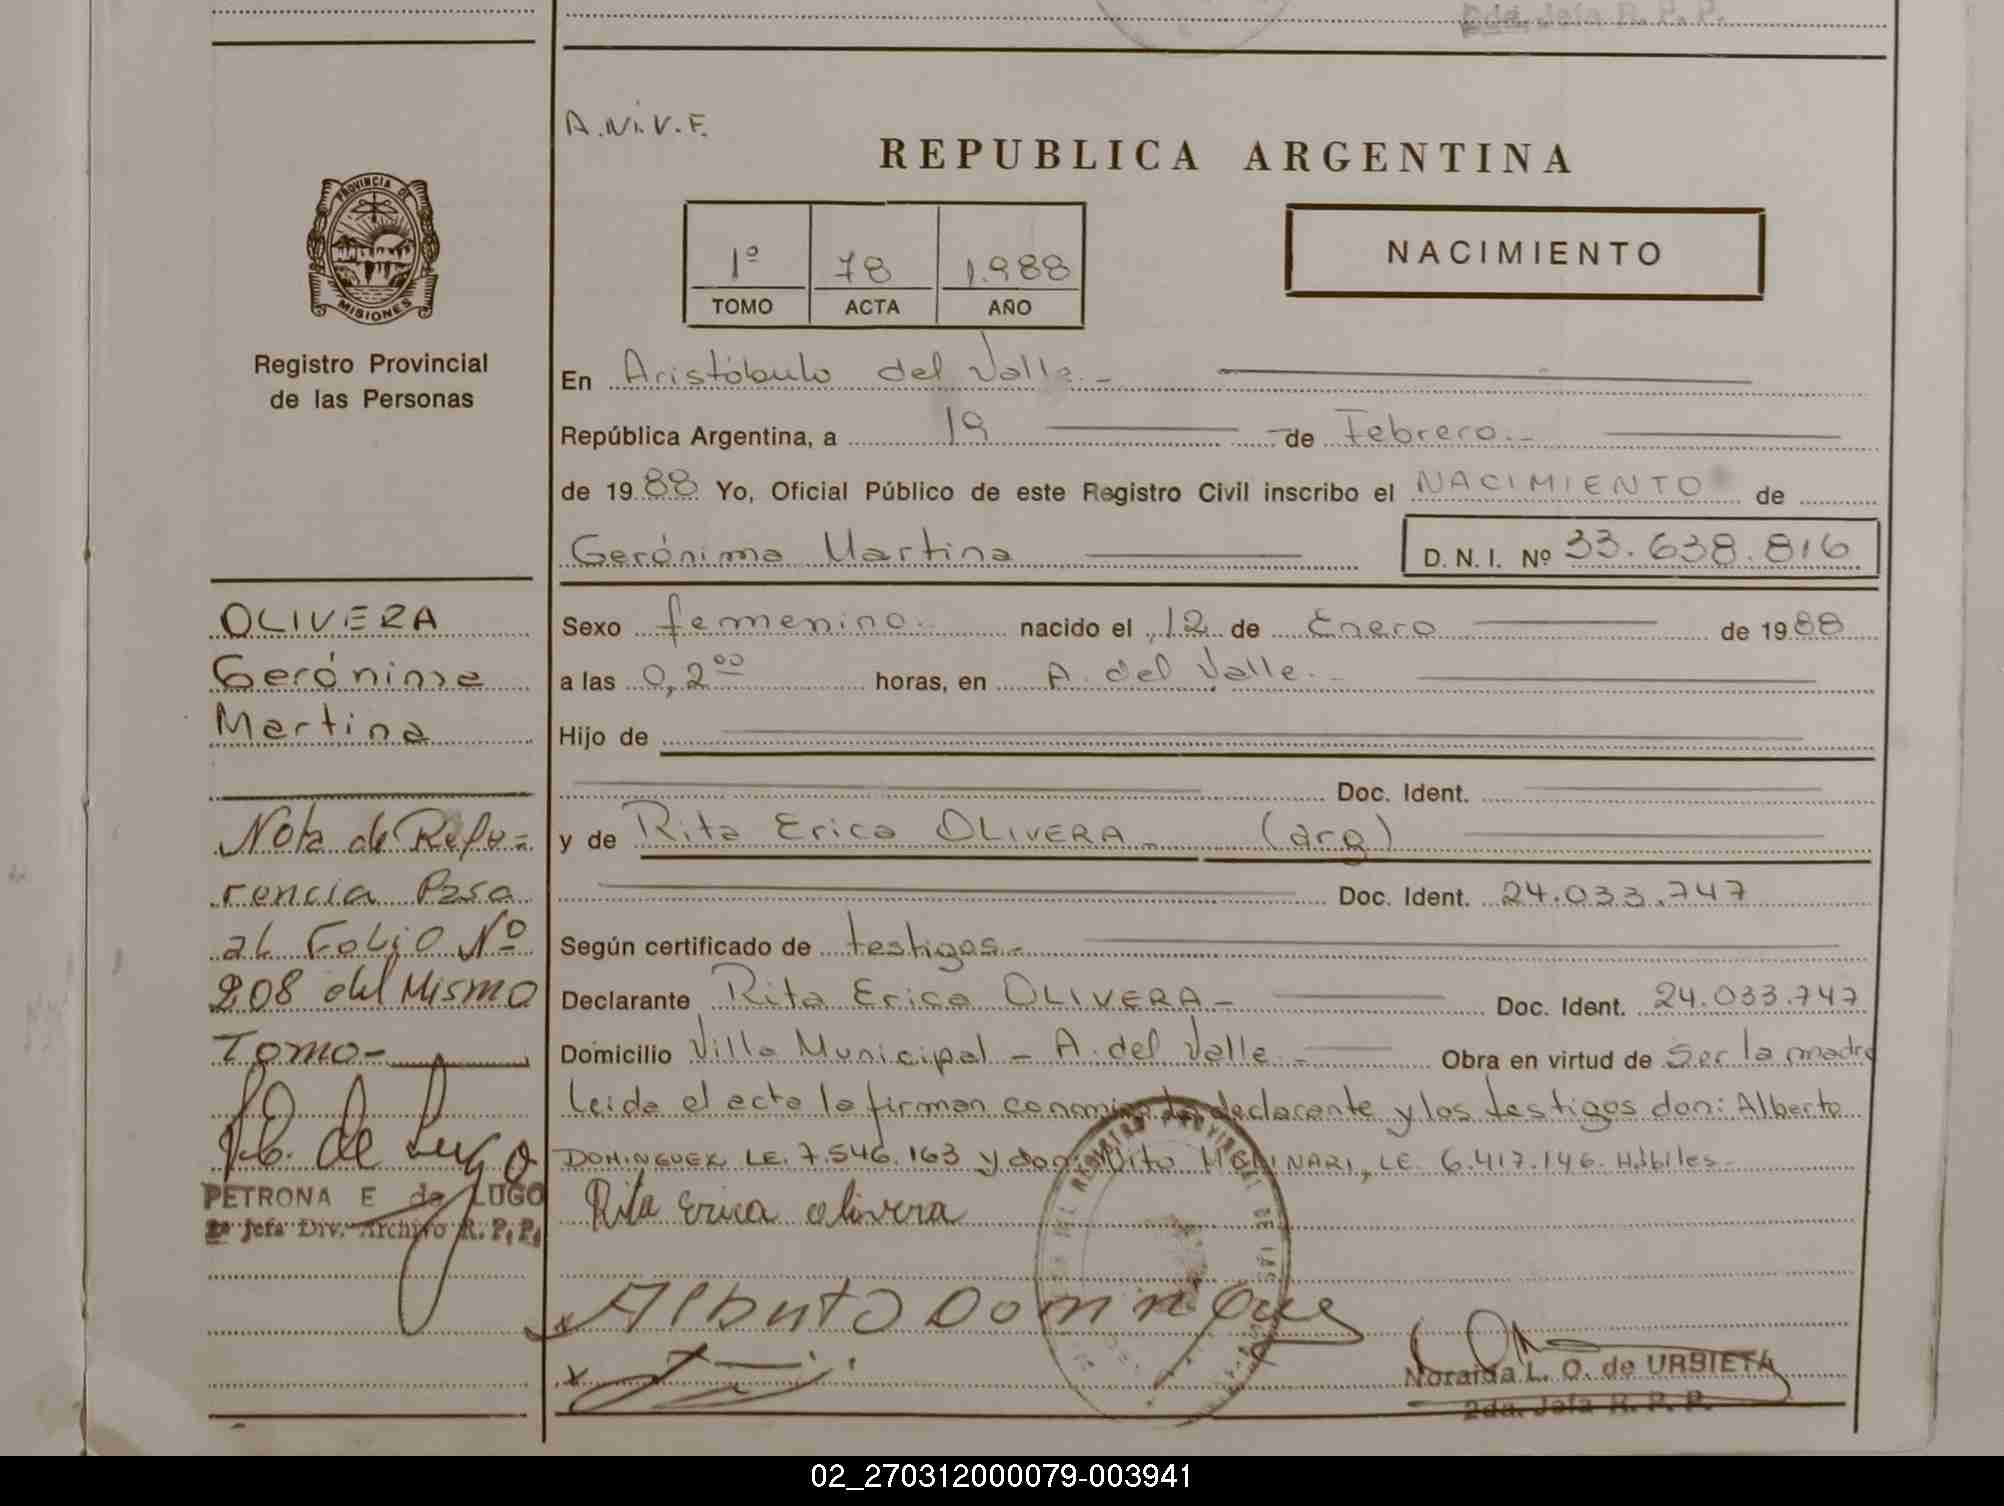 2da. Jefa R. P. P.
A.Ni.V.F.
REPUBLICA ARGENTINA
PROVINCIA DE
MISIONES
1º 78 1.988
TOMO ACTA AÑO
NACIMIENTO
Registro Provincial
de las Personas
En Aristóbulo del Valle.-
República Argentina, a 19 de Febrero.-
de 1988 Yo, Oficial Público de este Registro Civil inscribo el NACIMIENTO de
Gerónima Martina D. N. I. Nº 33.638.816
OLIVERA
Gerónima
Martina
Sexo femenino. nacido el 12 de Enero de 1988
a las 0,2ºº horas, en A. del Valle.-
Hijo de
Doc. Ident.
y de Rita Erica OLIVERA.- (arg)
Doc. Ident. 24.033.747
Según certificado de testigos.-
Declarante Rita Erica OLIVERA.- Doc. Ident. 24.033.747
Domicilio Villa Municipal - A. del Valle.- Obra en virtud de Ser la madre
Leida el acta la firman conmigo la declarante y los testigos don: Alberto
DOMINGUEZ, LE. 7.546.163 y don: Vito MOLINARI, LE. 6.417.146. Hábiles.-
Nota de Refe=
rencia Pasa
al Folio Nº
208 del Mismo
Tomo-
P.E. de Lugo
PETRONA E de LUGO
2a Jefa Div. Archivo R. P. P.
Rita Erica Olivera
Alberto Domingues
REGISTRO PROVINCIAL DE LAS
Noraida L. O. de URBIETA
2da. Jefa R. P. P.
02_270312000079-003941